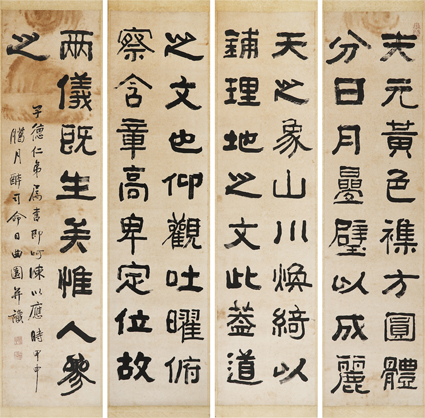 夫元黃色襍方圓體
分日月疊璧以成麗
天之象山川煥綺以
鋪理地之文此蓋道
之文也仰觀吐曜俯
察含章高卑定位故
兩儀既生矣惟人參
之
子德仁弟屬書即呵凍以應時甲申
臘月醉司命日曲園并識